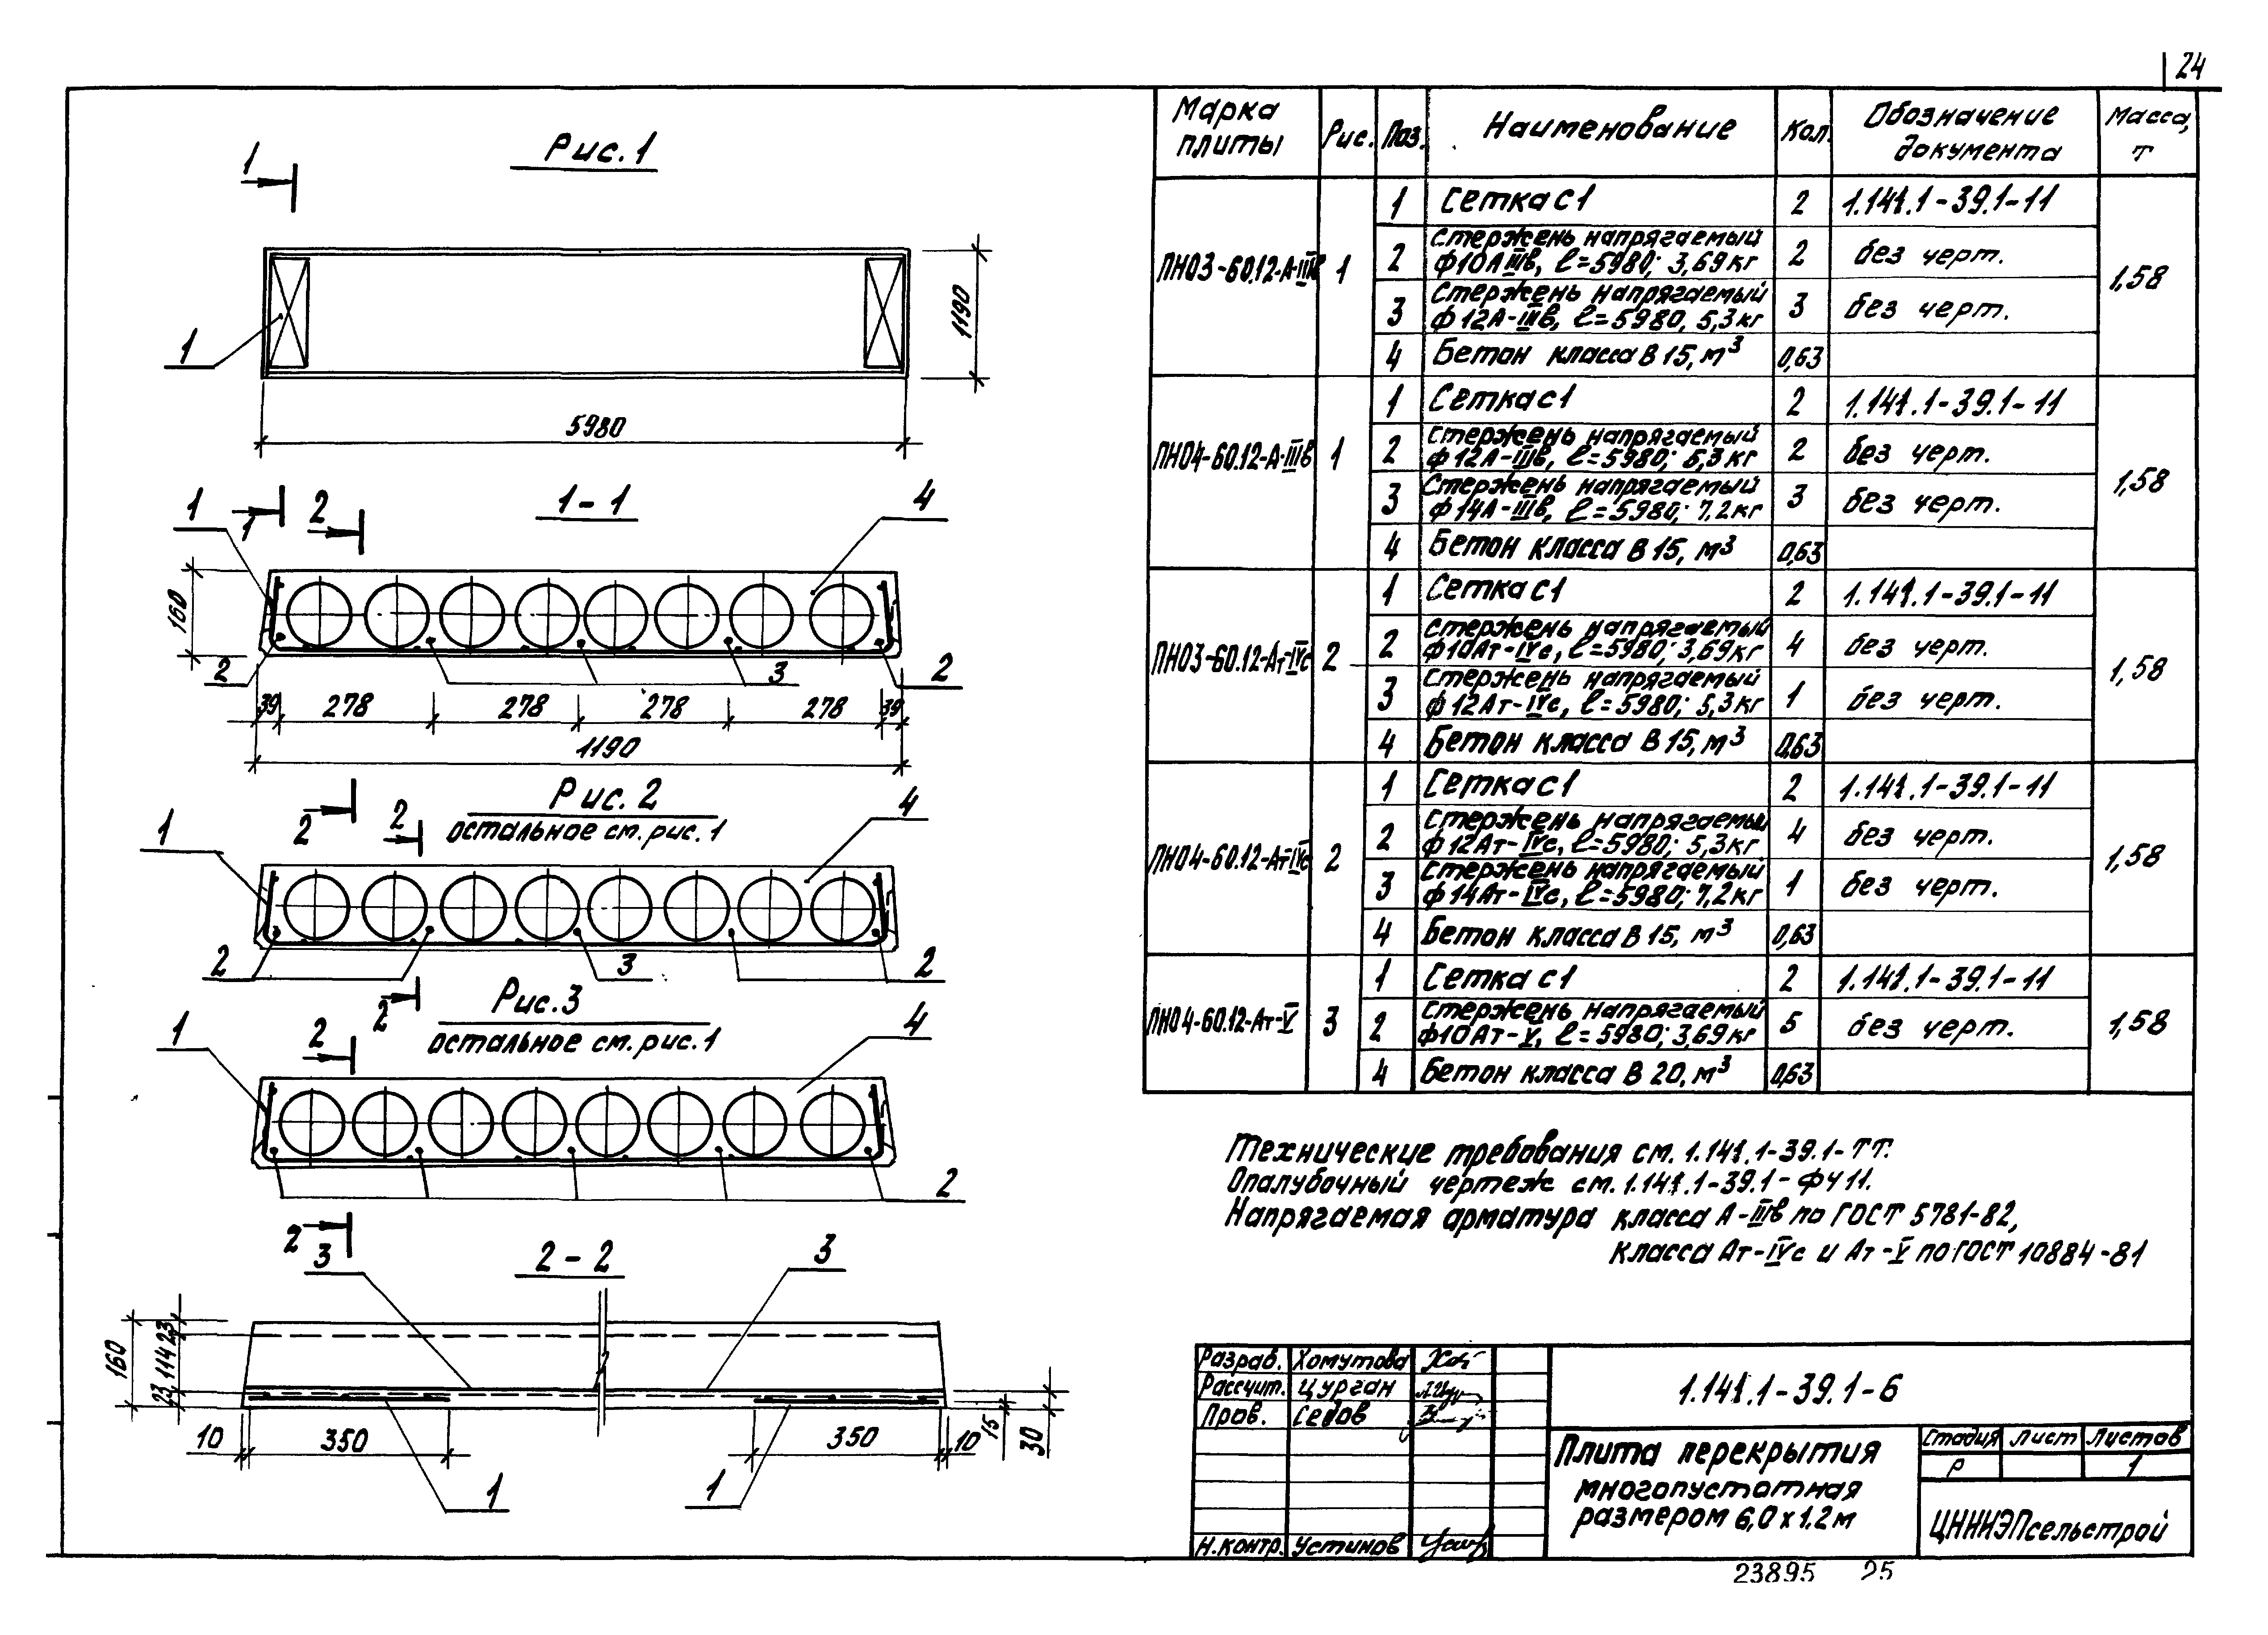 24
Рис.1
1
1
1190
5980
1-1
1
1
2
4
160
2
3
2
39
278
278
278
278
39
1190
2
Рис. 2
остальное см. рис. 1
1
2
4
2
3
2
2
Рис.3
остальное см. рис. 1
1
2
4
2
2
2-2
3
3
160
23
114
23
10
350
350
10
15
30
1
1
Марка плиты
Рис.
Поз.
Наименование
Кол.
Обозначение документа
Масса, т
ПНО3-60.12-А-IIIв
1
1,58
1 Сетка С1 2 1.141.1-39.1-11
2 Стержень напрягаемый
ф10АIIIв, ℓ=5980; 3,69кг 2 без черт.
3 Стержень напрягаемый
ф12А-IIIв, ℓ=5980; 5,3кг 3 без черт.
4 Бетон класса В15, м³ 0,63
ПНО4-60.12-А-IIIв
1
1,58
1 Сетка С1 2 1.141.1-39.1-11
2 Стержень напрягаемый
ф12А-IIIв, ℓ=5980; 5,3кг 2 без черт.
3 Стержень напрягаемый
ф14А-IIIв, ℓ=5980; 7,2кг 3 без черт.
4 Бетон класса В15, м³ 0,63
ПНО3-60.12-АтIVс
2
1,58
1 Сетка С1 2 1.141.1-39.1-11
2 Стержень напрягаемый
ф10Ат-IVс, ℓ=5980; 3,69кг 4 без черт.
3 Стержень напрягаемый
ф12Ат-IVс, ℓ=5980; 5,3кг 1 без черт.
4 Бетон класса В15, м³ 0,63
ПНО4-60.12-АтIVс
2
1,58
1 Сетка С1 2 1.141.1-39.1-11
2 Стержень напрягаемый
ф12Ат-IVс, ℓ=5980; 5,3кг 4 без черт.
3 Стержень напрягаемый
ф14Ат-IVс, ℓ=5980; 7,2кг 1 без черт.
4 Бетон класса В15, м³ 0,63
ПНО4-60.12-Ат-V
3
1,58
1 Сетка С1 2 1.141.1-39.1-11
2 Стержень напрягаемый
ф10Ат-V, ℓ=5980; 3,69кг 5 без черт.
4 Бетон класса В20, м³ 0,63
Технические требования см. 1.141.1-39.1-ТТ.
Опалубочный чертеж см. 1.141.1-39.1-ФЧ11.
Напрягаемая арматура класса А-IIIв по ГОСТ 5781-82,
класса Ат-IVс и Ат-V по ГОСТ 10884-81
Разраб. Хомутова
Рассчит. Цурган
Пров. Седов
Н.контр. Устинов
1.141.1-39.1-6
Плита перекрытия
многопустотная
размером 6,0х1,2м
Стадия Лист Листов
Р 1
ЦНИИЭПсельстрой
23895 25